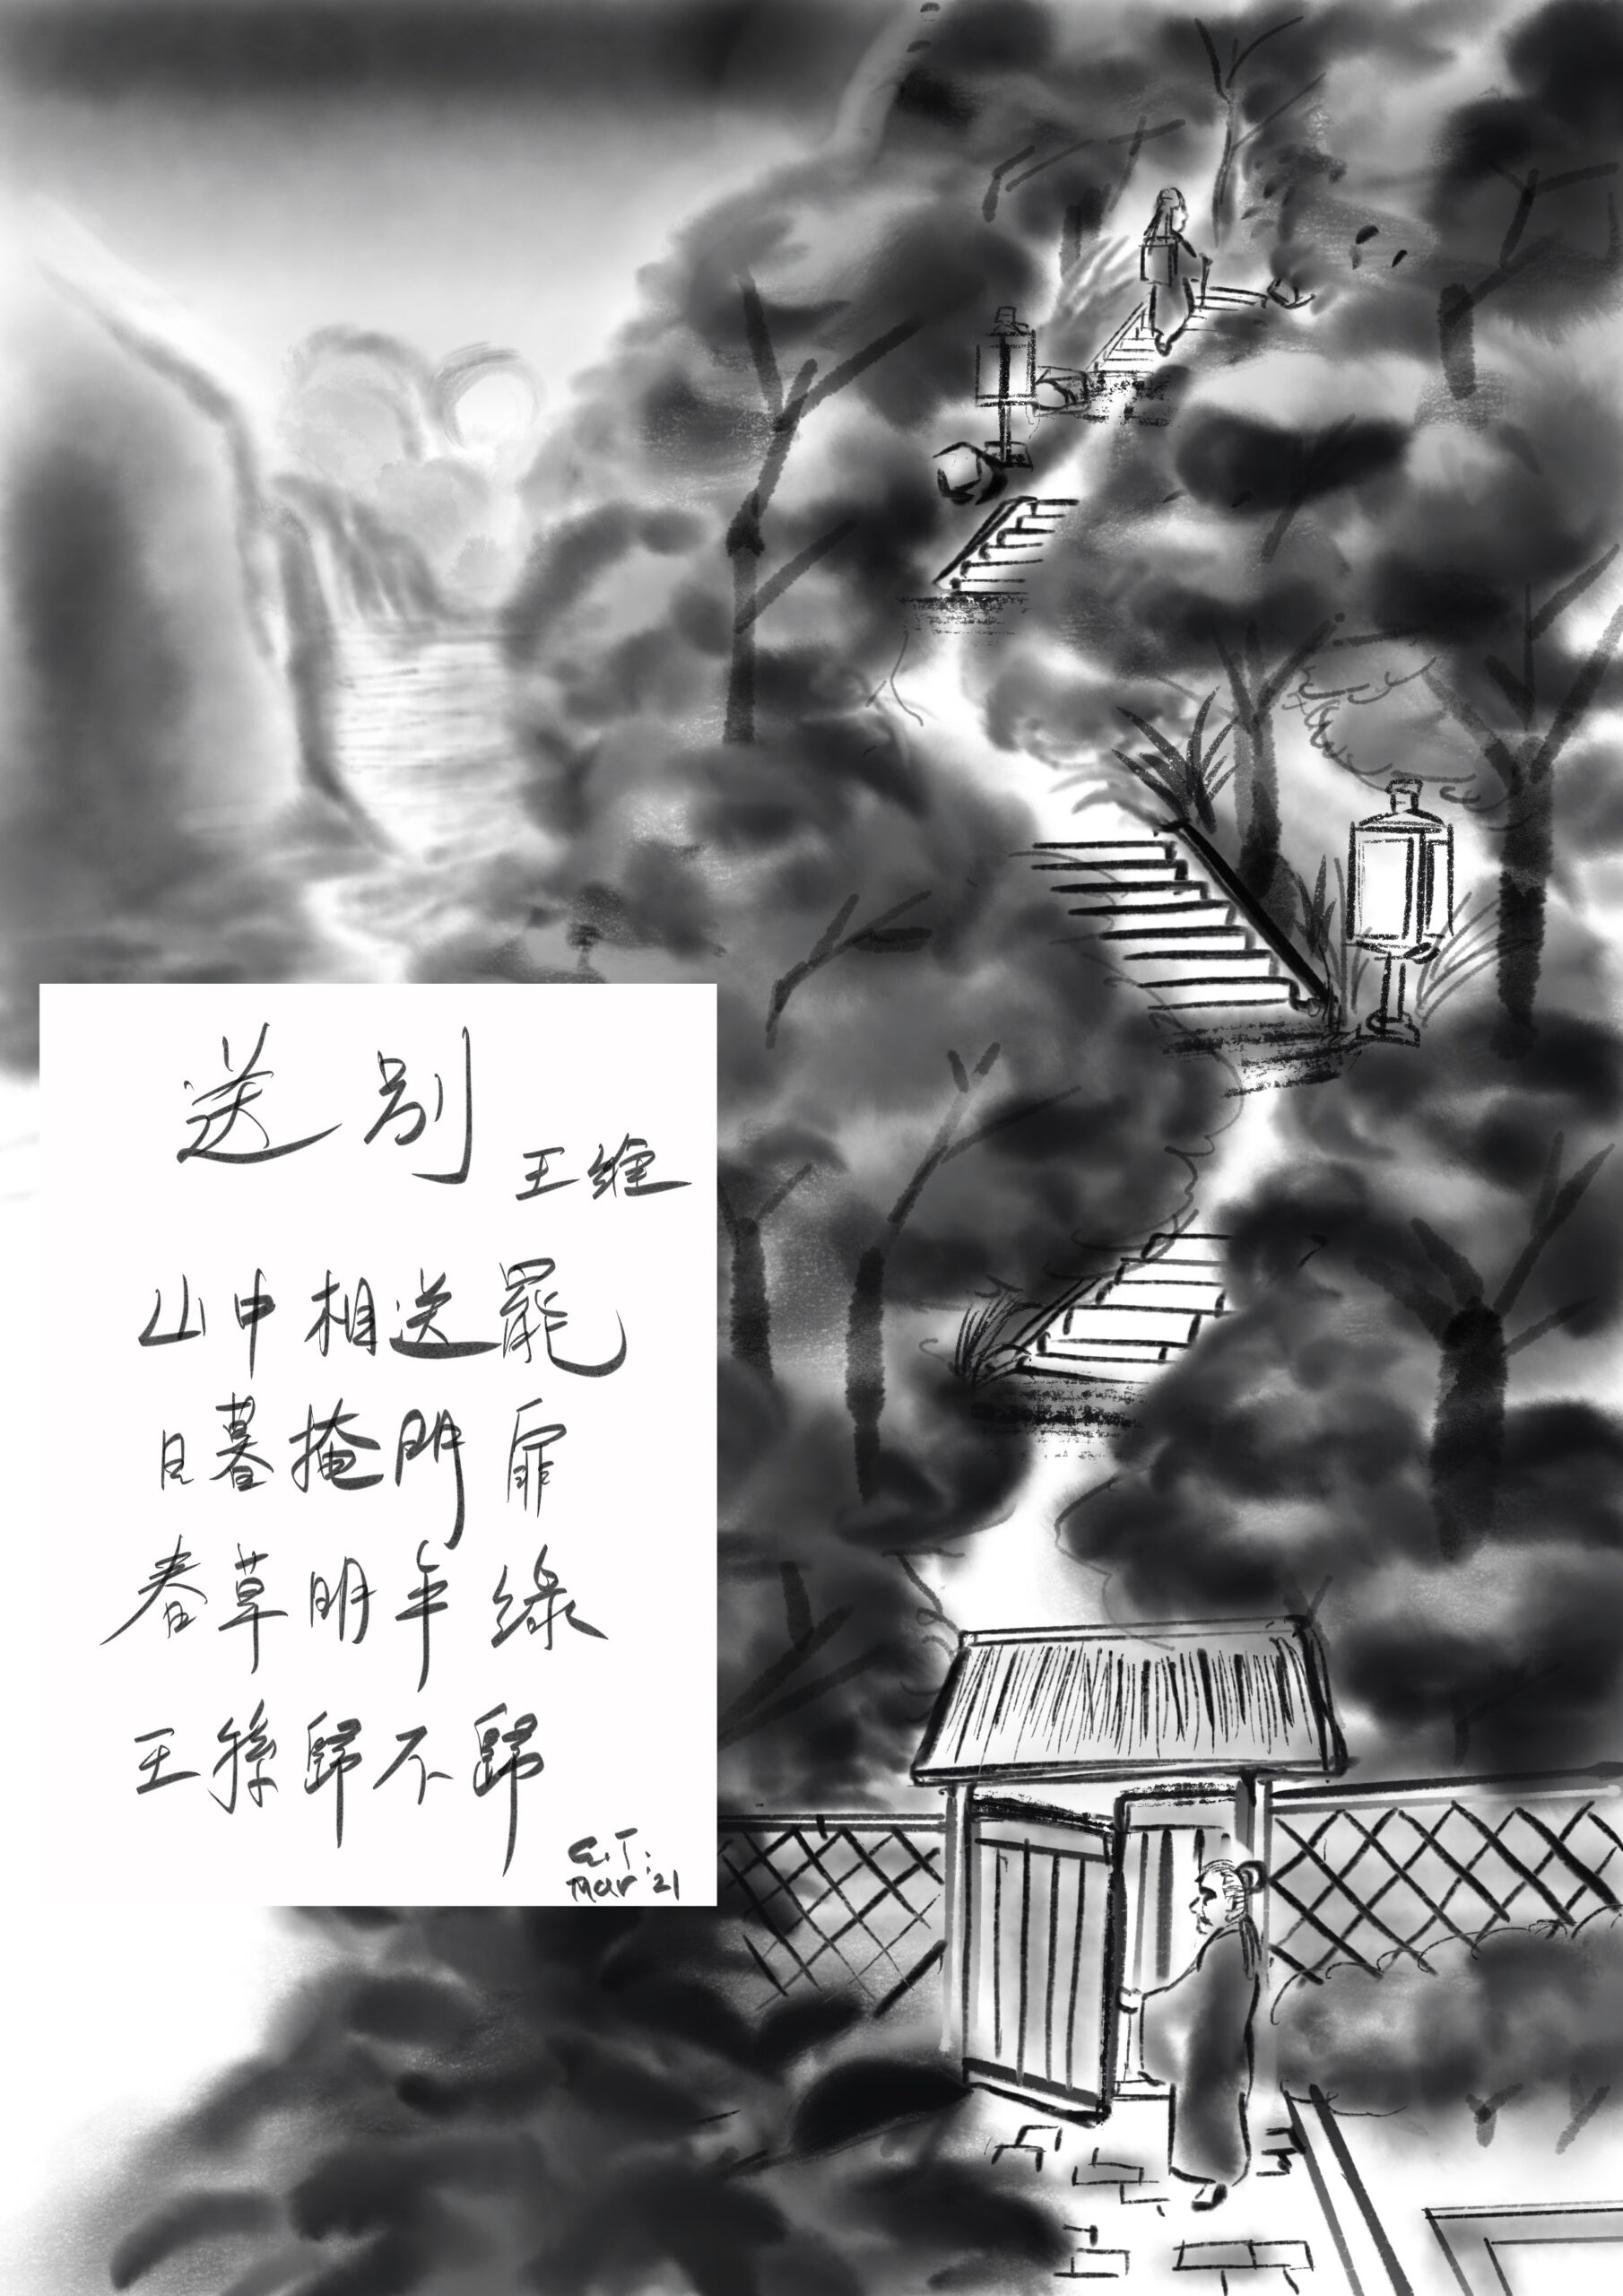 送别
王維
山中相送罷
日暮掩門扉
春草明年綠
王孫歸不歸
E.T.
Mar '21